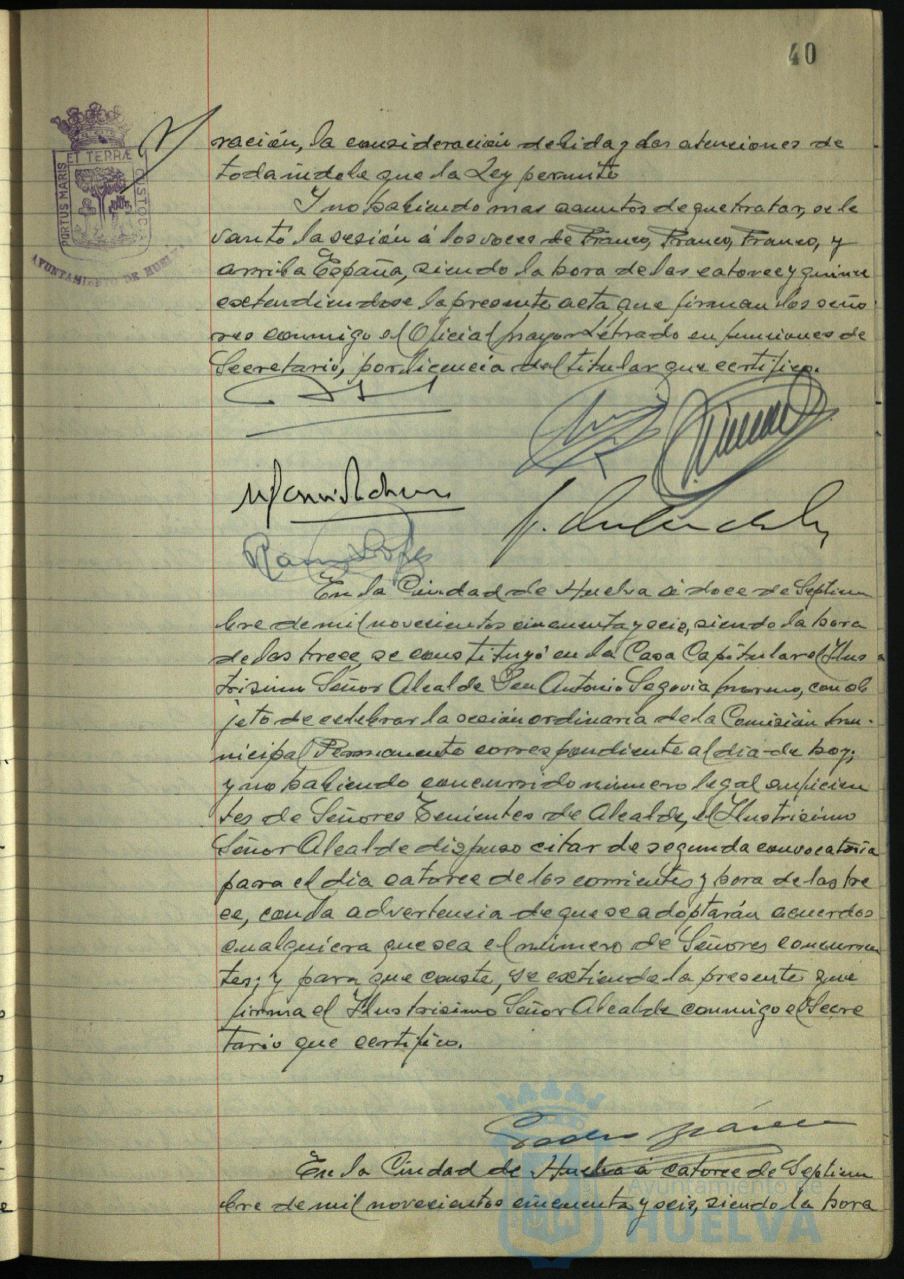 40
PORTUS MARIS
ET TERRÆ
CUSTODIA
AYUNTAMIENTO DE HUELVA
ración, la consideración debida y las atenciones de
toda indole que la Ley permite
Y no habiendo mas asuntos de que tratar, se le
vantó la sesión á los voces de Franco, Franco, Franco, y
arriba España, siendo la hora de las catorce y quince
extendiendose la presente acta que firman los seño-
res conmigo el Oficial mayor Letrado en funciones de
Secretario, por licencia del titular que certifico.
En la Ciudad de Huelva á doce de Septiem
bre de mil novecientos cincuenta y seis, siendo la hora
de las trece, se constituyó en la Casa Capitular el Ilus
trisimo Señor Alcalde Don Antonio Segovia Moreno, con ob
jeto de celebrar la sesión ordinaria de la Comisión Mu-
nicipal Permanente correspondiente al dia de hoy;
y no habiendo concurrido número legal suficien
tes de Señores Tenientes de Alcalde, el Ilustrisimo
Señor Alcalde dispuso citar de segunda convocatoria
para el dia catorce de los corrientes y hora de las tre
ce, con la advertencia de que se adoptarán acuerdos
cualquiera que sea el número de Señores concurren
tes; y para que conste, se extiende la presente que
firma el Ilustrisimo Señor Alcalde conmigo el Secre
tario que certifico.
En la Ciudad de Huelva á catorce de Septiem
bre de mil novecientos cincuenta y seis, siendo la hora
Ayuntamiento de
HUELVA